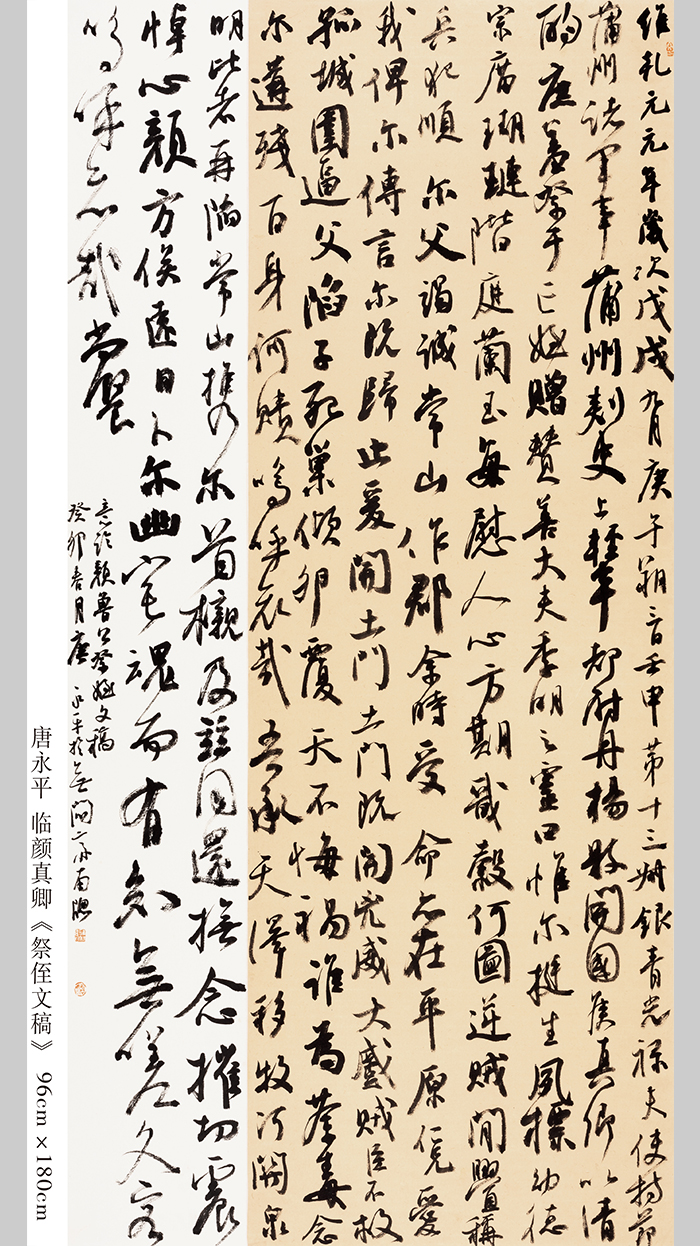 維乾元元年歲次戊戌九月庚午朔三日壬申第十三叔銀青光祿夫使持節
蒲州諸軍事蒲州刺史上輕車都尉丹楊縣開國侯真卿以清
酌庶羞祭于亡姪贈贊善大夫季明之靈曰惟尔挺生夙標幼德
宗廟瑚璉階庭蘭玉每慰人心方期戩穀何圖逆賊閒釁稱
兵犯順尔父竭誠常山作郡余時受命亦在平原仁兄愛
我俾尔傳言尔既歸止爰開土門土門既開兇威大蹙賊臣不救
孤城圍逼父陷子死巢傾卵覆天不悔禍誰為荼毒念
尔遘殘百身何贖嗚呼哀哉吾承天澤移牧河關泉
明比者再陷常山攜尔首櫬及茲同還撫念摧切震
悼心顏方俟遠日卜尔幽宅魂而有知無嗟久客
嗚呼哀哉尚饗
意臨顏魯公祭姪文稿
癸卯春月唐永平於無聞齋南牕
唐永平 临颜真卿《祭侄文稿》 96cm×180cm